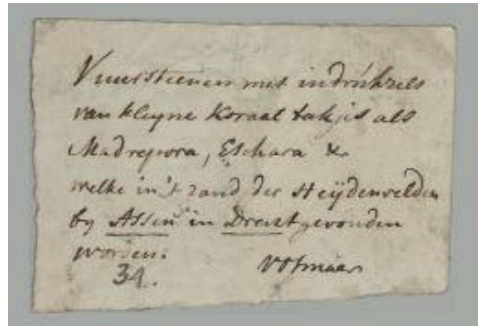 Vuursteenen met indrukzels
van kleyne Koraal takjes als
Madrepora, Eschara &
welke in't zand der Heijdenvelden
by Assen in Drent gevonden
worden.
31. Vosmaer